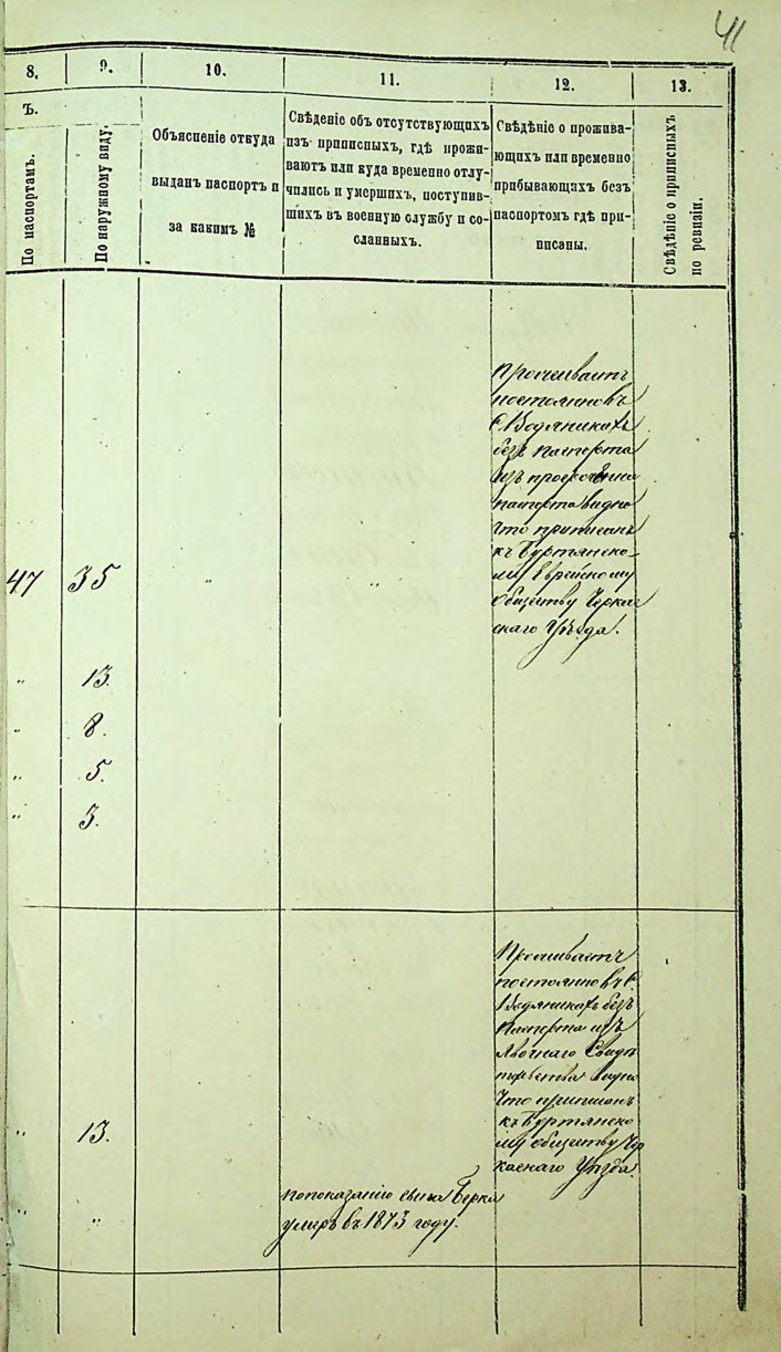 41
8. 9. 10. 11. 12. 13.
Ъ.
По паспортамъ.
По наружному виду.
Объясненіе откуда
выданъ паспортъ и
за какимъ №
Свѣденіе объ отсутствующихъ
изъ приписныхъ, гдѣ прожи-
ваютъ или куда временно отлу-
чились и умершихъ, поступив-
шихъ въ военную службу и со-
сланныхъ.
Свѣдѣніе о прожива-
ющихъ или временно
прибывающихъ безъ
паспортомъ гдѣ при-
писаны.
Свѣдѣніе о приписныхъ
по ревизіи.
Проживаетъ
постоянно въ
с. Водяникахъ
безъ паспорта
изъ просроченна
паспорта видно
что приписанъ
къ Буртянско-
му Еврейскому
обществу Черкас
скаго Уѣзда.
47 35 " "
" 13.
" 8.
" 5.
" 3.
Проживаетъ
постоянно въ с.
Водяникахъ безъ
паспорта изъ
явочнаго Свидѣ
тельства видно
что приписанъ
къ Буртянско
му обществу Чер
каскаго Уѣзда.
" 13.
" "
по показанію сына Берка
умеръ въ 1873 году.